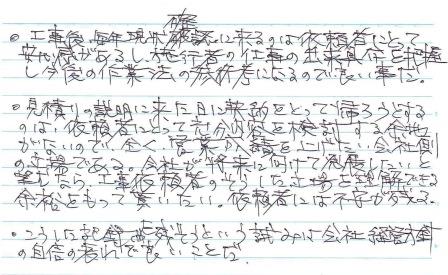 確
・工事後、毎年現状確認に来るのは依頼者にとって
安心感があるし、施行者の仕事の出来具合を把握
し今後の作業法の参考になるので良い事だ。
・見積りの説明に来た日に契約をとって帰ろうとする
のは、依頼者にとって充分内容を検討する余地
がないので、全く、営業が績を上げたい会社側
の立場である。会社が将来に向けて発展したいと
望むなら、工事依頼者のそうした立場を理解できる
余裕をもって貰いたい。依頼者には不安が残る。
・こうした記録を残そうという試みは会社経営方針
の自信の表れで良いことだ。